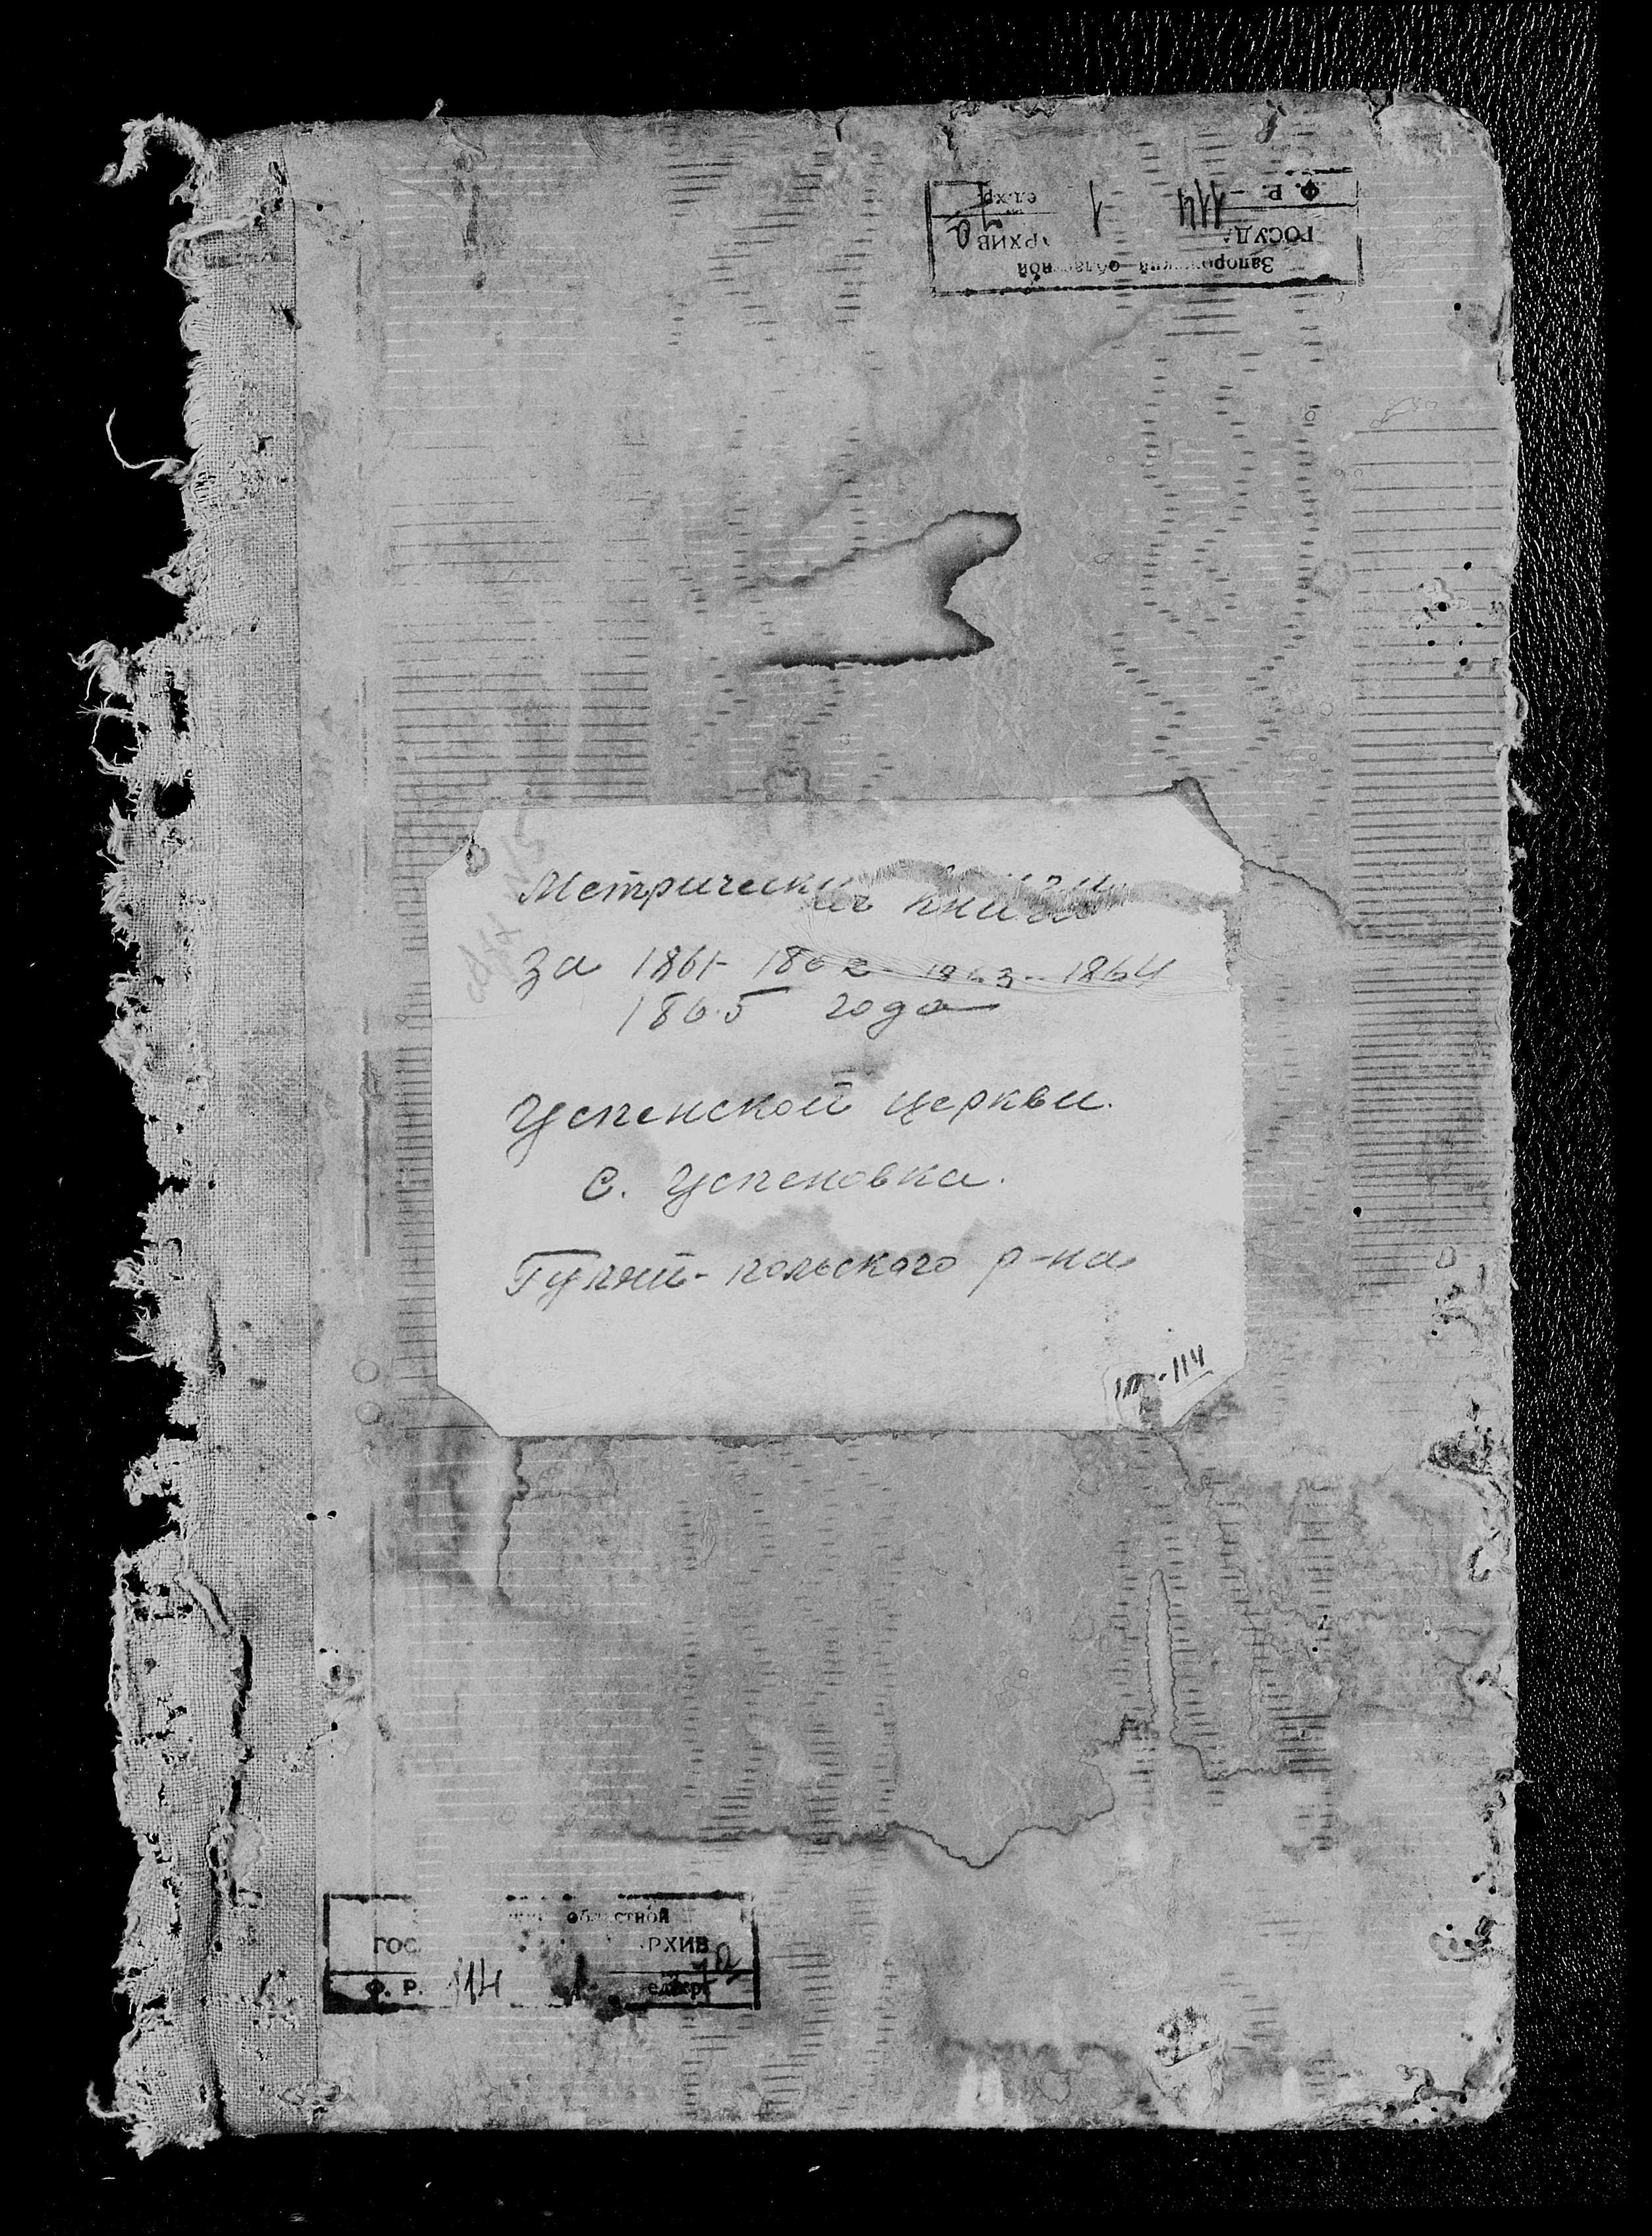 Запорожский областной
ГОСУД АРХИВ
Ф. Р. - 114 1 ед.хр.
Метрические книги
за 1861- 1862- 1863- 1864
1865 года
Успенской церкви.
С. Успеновка.
Гуляй-польского р-на
-114
областной
ГОС АРХИВ
Ф. Р. 114 1 ед.хр.